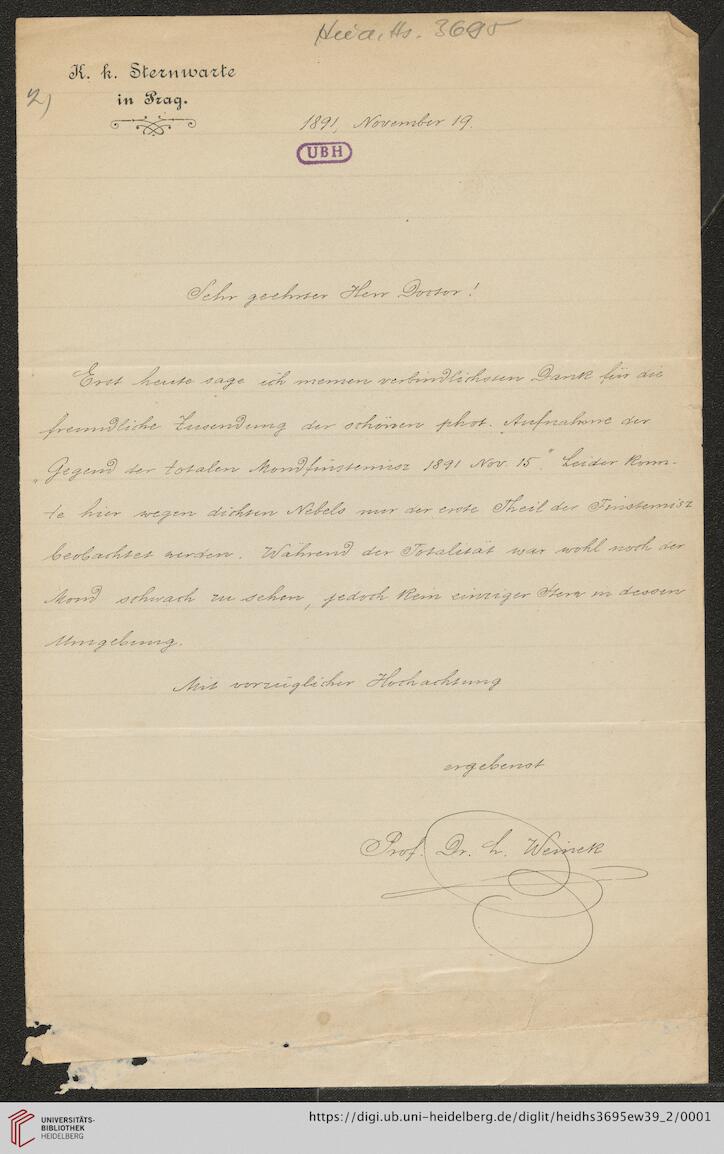 Heid. Hs. 3695
K. k. Sternwarte
in Prag.
2)
1891, November 19.
UBH
Sehr geehrter Herr Doctor!
Erst heute sage ich meinen verbindlichsten Dank für die
freundliche Zusendung der schönen phot. Aufnahme der
„Gegend der totalen Mondfinsterniss 1891 Nov. 15“. Leider konn-
te hier wegen dichten Nebels nur der erste Theil der Finsterniss
beobachtet werden. Während der Totalität war wohl noch der
Mond schwach zu sehen, jedoch kein einziger Stern in dessen
Umgebung.
Mit vorzüglicher Hochachtung
ergebenst
Prof. Dr. L. Weinek
UNIVERSITÄTS-
BIBLIOTHEK
HEIDELBERG
https://digi.ub.uni-heidelberg.de/diglit/heidhs3695ew39_2/0001